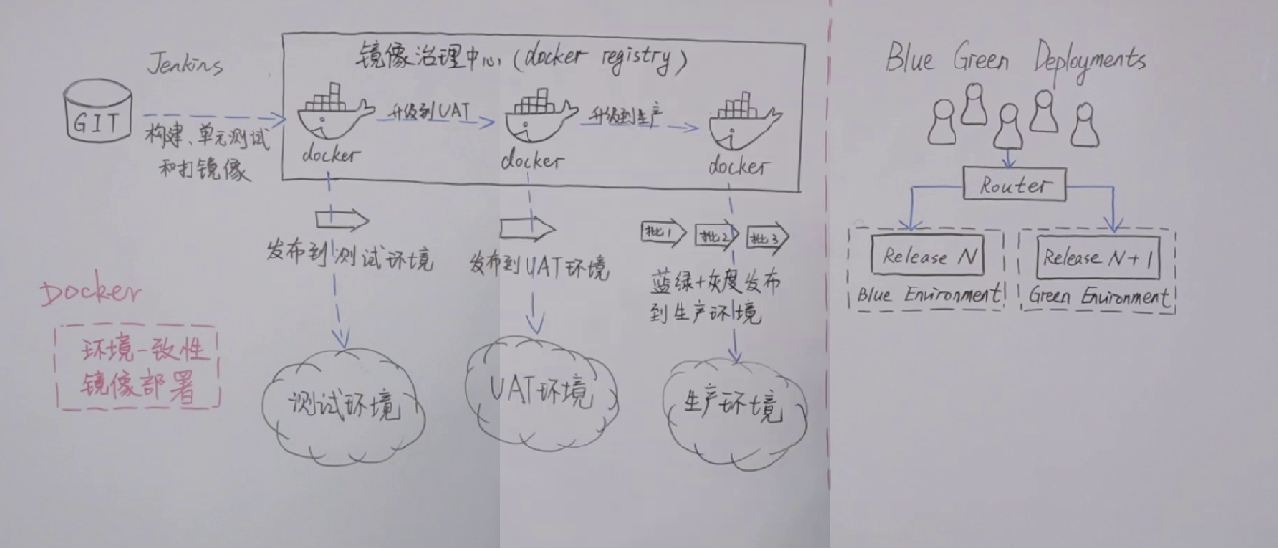 Jenkins
GIT
构建、单元测试
和打镜像
镜像治理中心(docker registry)
升级到UAT
升级到生产
docker
docker
docker
发布到测试环境
发布到UAT环境
批1
批2
批3
蓝绿+灰度发布
到生产环境
测试环境
UAT环境
生产环境
Docker
环境一致性
镜像部署
Blue Green Deployments
Router
Release N
Release N+1
Blue Environment
Green Environment